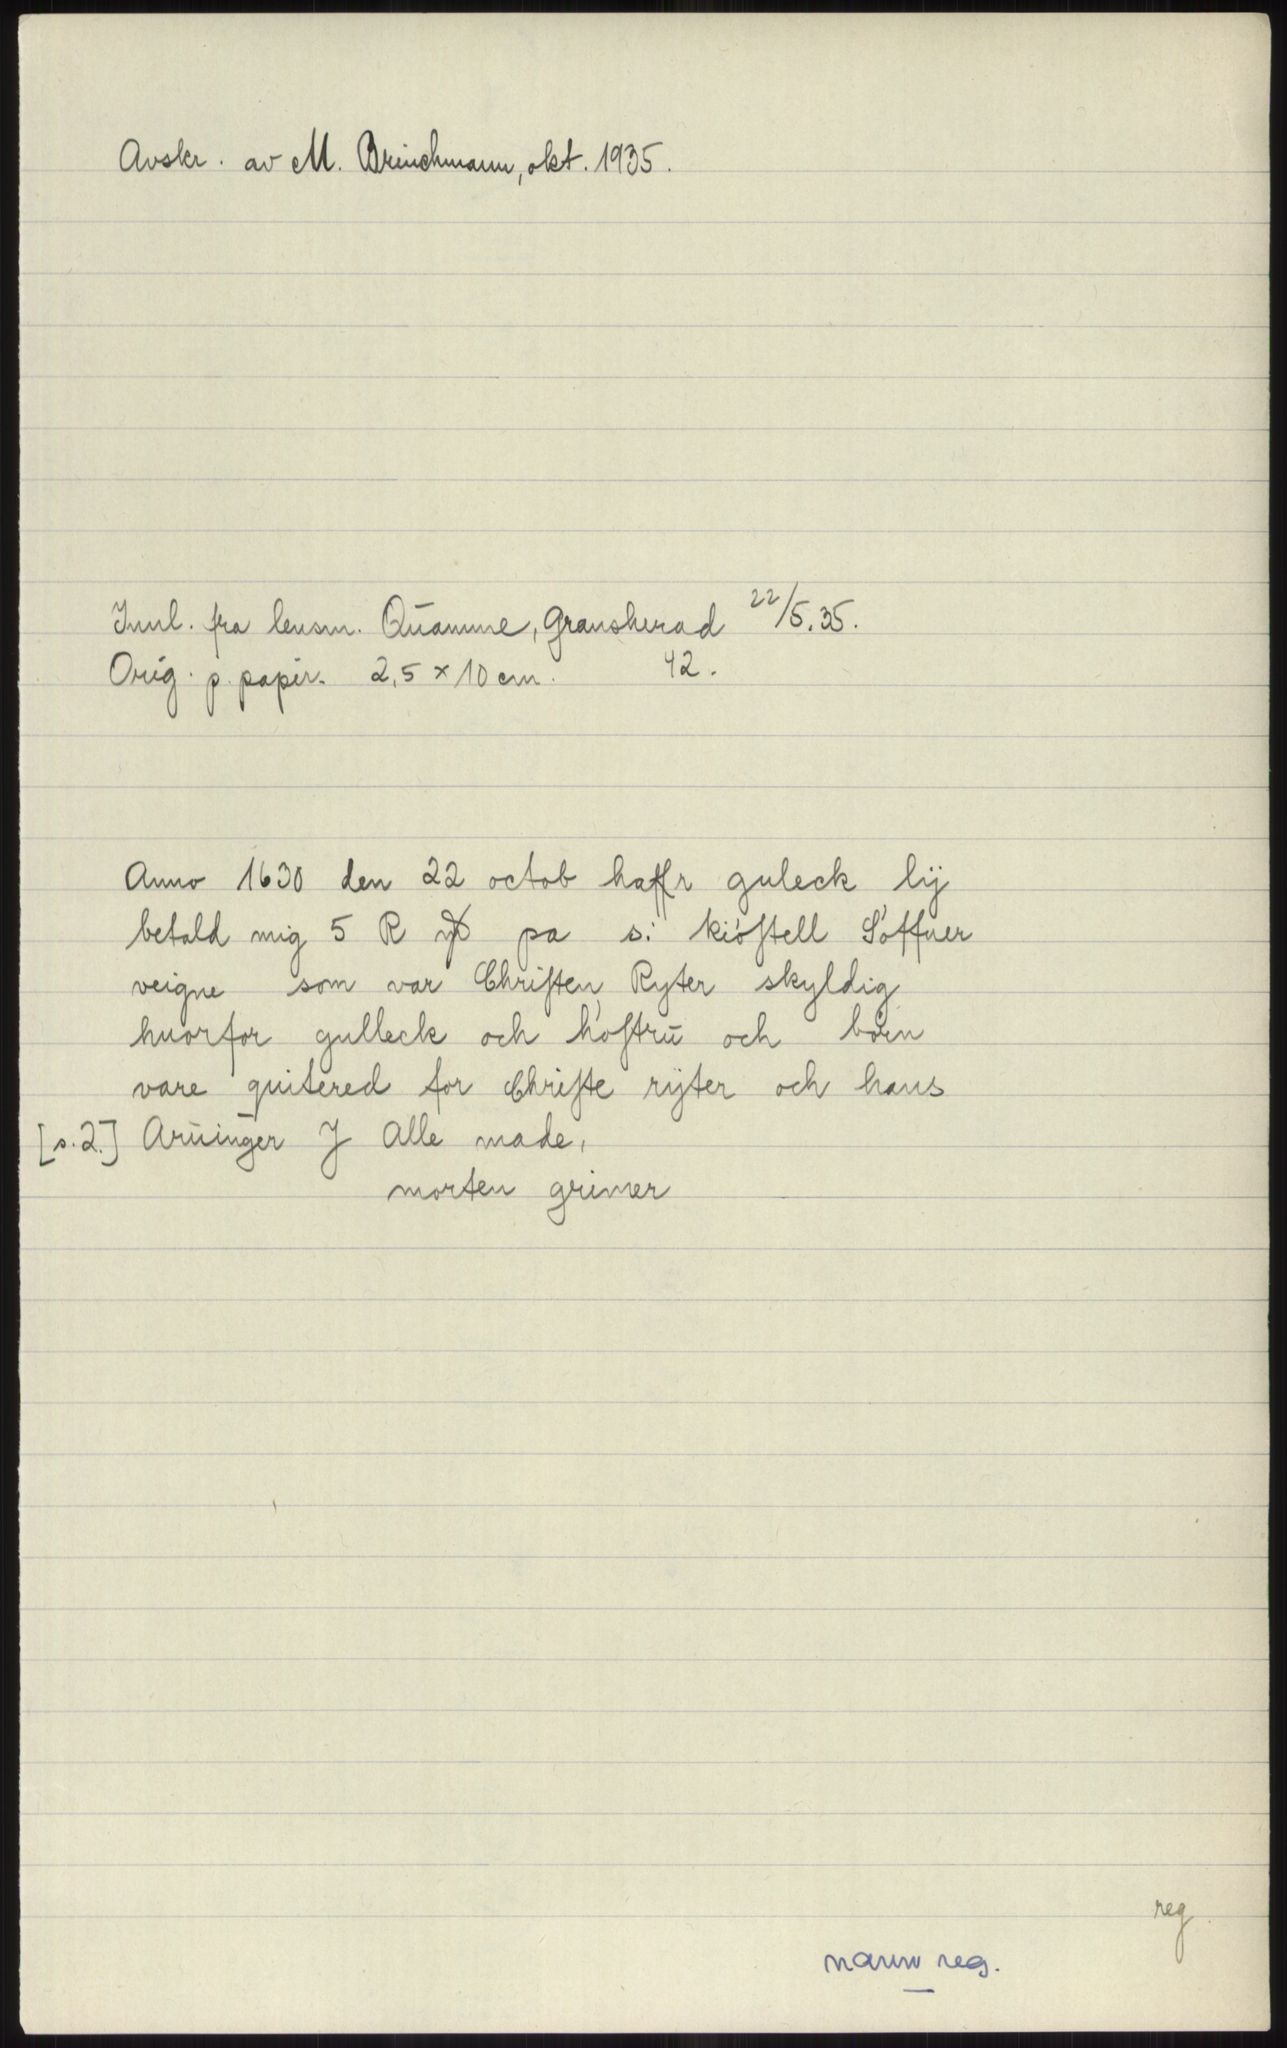 Avskr. av M. Brinchmann, okt. 1935.
Innl. fra lensm. Qŭamme, Gransherad 22/5.35.
Orig. p. papir. 2,5 x 10 cm. 42.
Anno 1630 den 22 octob haffr guleck lÿ
betald mig 5 R pa s: kiöftell Söffuer
veigne som var Chriften Ryter skyldig
huorfor gulleck och höftrŭ och börn
vare quitered for Chrifte rÿter och hans
[s.2.] Arŭinger J Alle made,
morten grimer
reg.
navn reg.